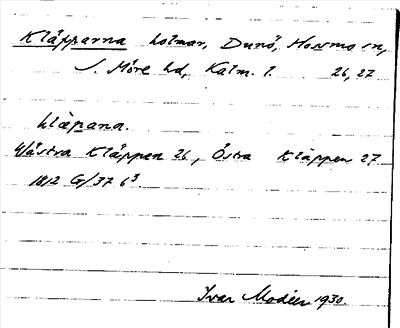 Kläpparna holmar, Dunö, Hossmo sn,
S. Möre hd, Kalm. l. 26, 27
klàpana.
Västra Kläppen 26, Östra Kläppen 27
1812 G/37 6³.
Ivar Modéer 1930.